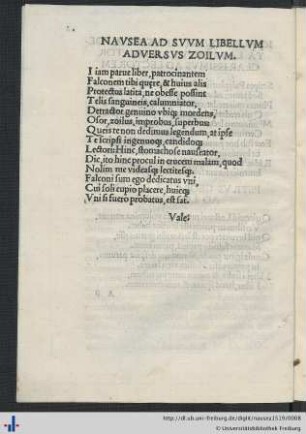 NAVSEA AD SVVM LIBELLVM
ADVERSVS ZOILVM.
I iam parue liber, patrocinantem
Falconem tibi quęre, & huius alis
Protectus latita, ne obesse possint
Telis sanguineis, calumniator,
Detractor genuino vbiq; mordens,
Osor, zoilus, improbus, superbus
Queis te non dedimus legendum, at ipse
Te scripsi ingenuoq;, candidoq;
Lectori: Hinc, stomachose nauseator,
Dic, ito hinc procul in crucem malam, quod
Nolim me videasq; lectitesq;
Falconi sum ego dedicatus vni,
Cui soli cupio placere, huicq;
Vni si fuero probatus, est sat.
Vale.
http://dl.ub.uni-freiburg.de/diglit/nausea1519/0008
© Universitätsbibliothek Freiburg